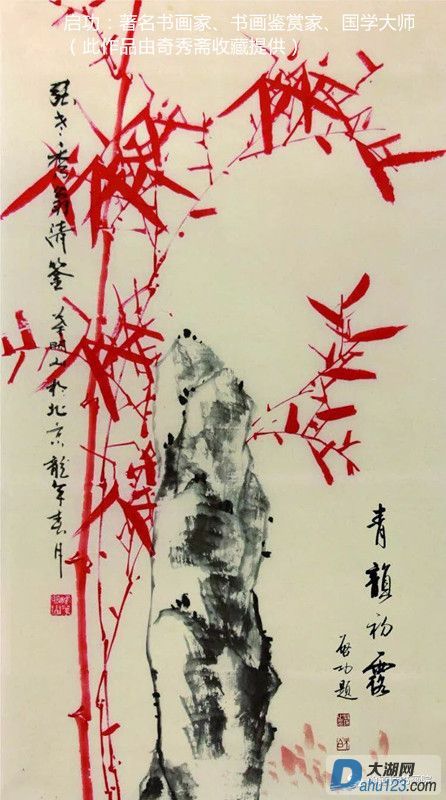 启功：著名书画家、书画鉴赏家、国学大师
（此作品由奇秀斋收藏提供）
清鉴
于北京龍年春月
青韻初露
启功題
大湖网
Dahu123.com